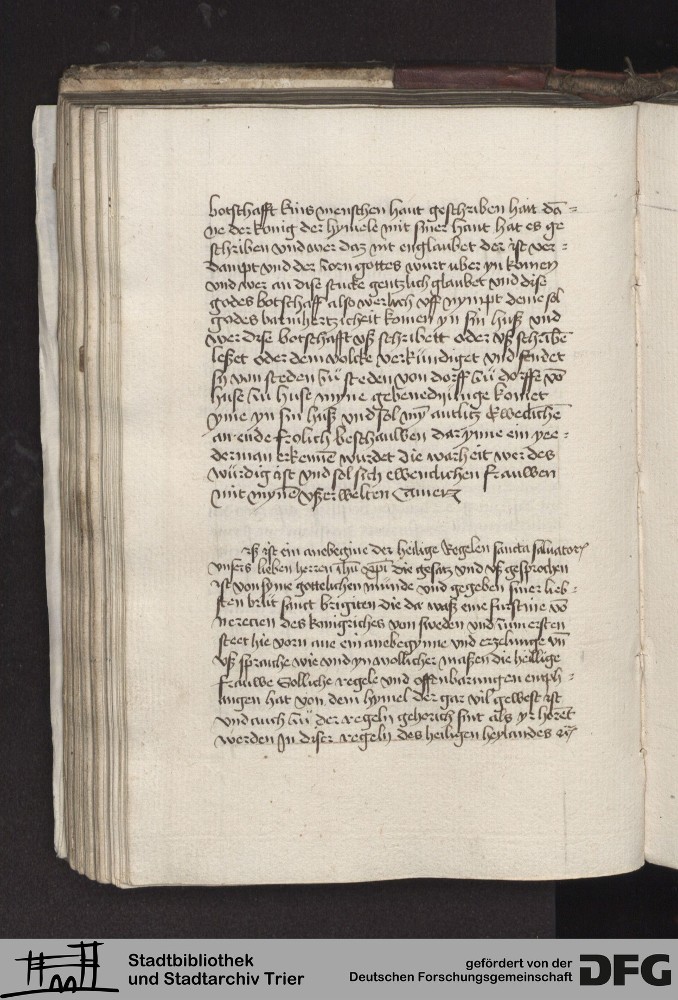 botschafft keins menschen hant geschriben hait dā=
ne der konig der hymele mit siner hant hat es ge
schriben vnd wer daz nit englaubet der ist ver=
dampt vnd der zorn gottes wurt uber yn komen
vnd wer an dise stucke gentzlich glaubet vnd dise
godes botschaff also werlich vff nympt deme sol
godes barmhertzicheit komen yn sin huß vnd
wer dise botschafft vß schribett oder vß schribē
leßet oder dem volcke verkündiget vnd sendet
sy von steden zü steden von dorff zü dorffe vō
huse zü huse myne gebenedyünge komet
yme yn sin huß vnd sol myn antlitz ewedichē
an ende frolich beschauwen dar ynne ein yee=
derman erkennē wurdet die warheit wer des
würdig ist vnd sol sich ewenclichen frauwen
mit mynē vßerwelten
ist ein anebegine der heilige Regelen sancta saluatorꝭ
vnsers lieben herren ihū xp̄i die gesatz vnd vß gesprochen
ist von syme gottelichen munde vnd gegeben siner lieb=
sten brüt sanct brigiten die da waß eine furstine vō
nerecien des konigriches von sweden vnd zum ersten
steet hie vorn ane ein anebegynne vnd erzelunge vn̄
vß sprache wie vnd yn wollicher maßen die heilige
frauwe Solliche regele vnd offenbarungen entph=
angen hat von dem hymel der gar vil gewest ist
vnd auch zü der regeln gehorich sint als yr horēt
werden Jn diser regeln des heiligen heylandes
Stadtbibliothek
und Stadtarchiv Trier
gefördert von der
Deutschen Forschungsgemeinschaft
DFG